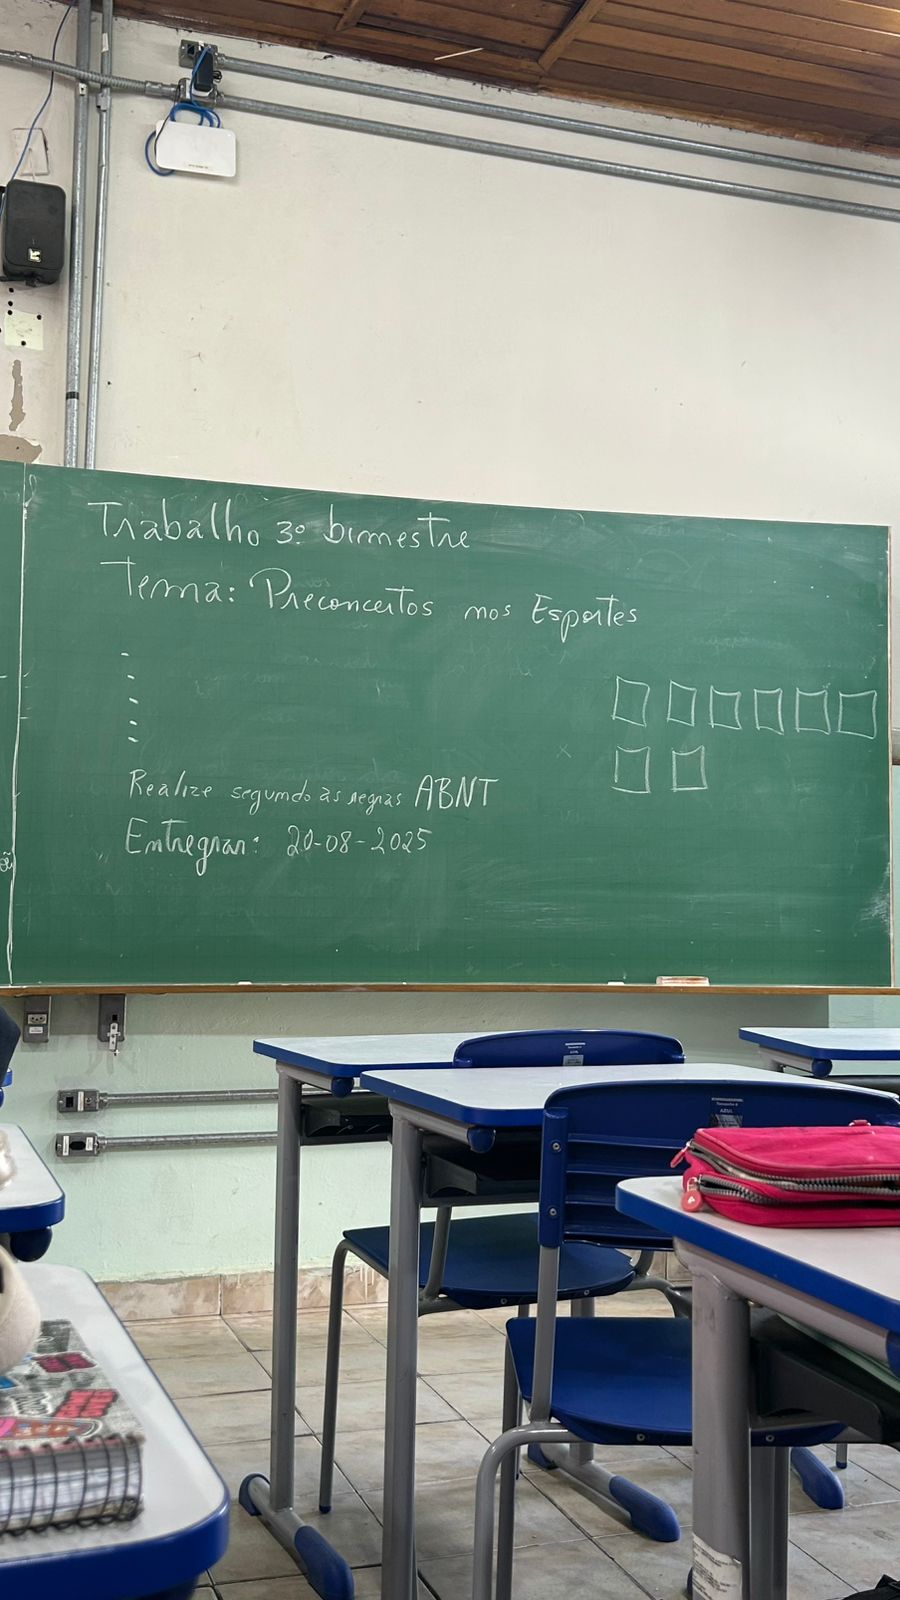 Trabalho 3º bimestre
Tema: Preconceitos nos Esportes
-
-
-
-
-
Realize segundo as regras ABNT
Entregar: 20-08-2025
AZUL